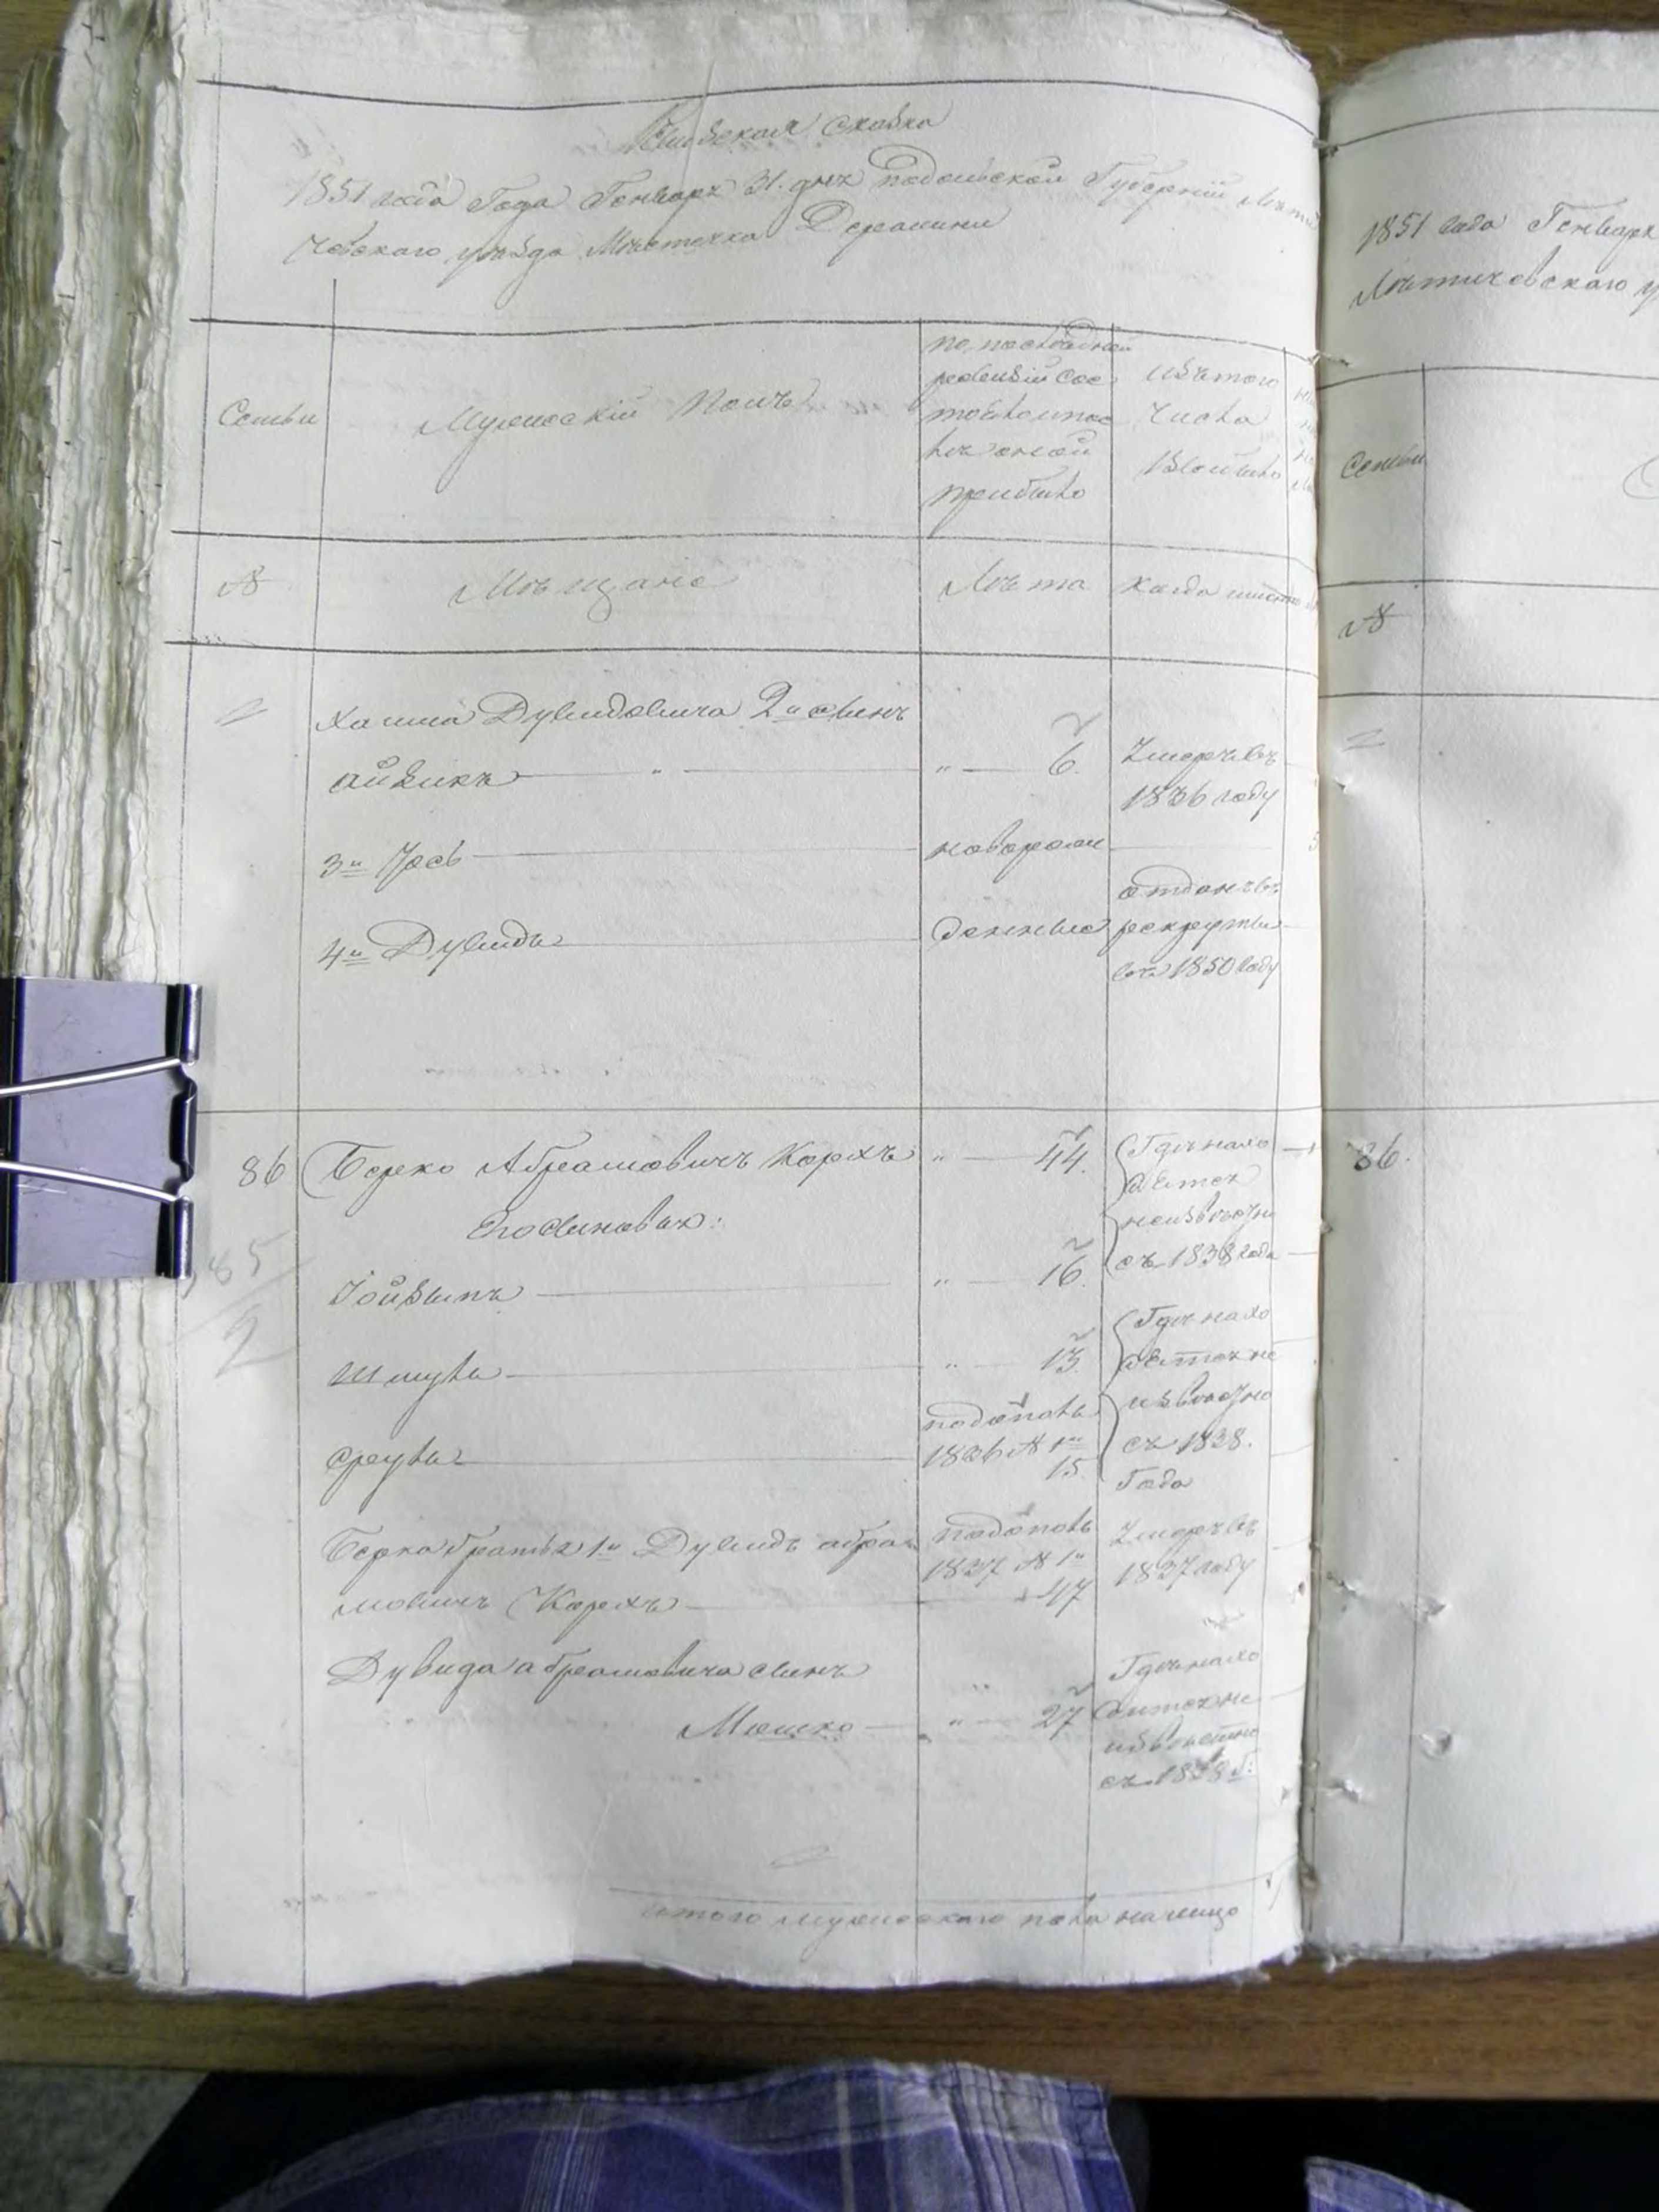 Ревизская сказка
1851 года Года Генваря 31. дня Подольской Губерніи Лѣти
чевскаго уѣзда Мѣстечка Деражни
Семьи
Мужескій Полъ
по последней
ревизіи сос
тояло и пос
лѣ оной
прибыло
Изъ того
числа
Выбыло
№
Мѣщане
Лѣта
Когда именно
Хаима Дувидовича 2й сынъ
Айзикъ — " —
" — 6.
Умеръ въ
1836 году
3й Іось
новорож
4й Дувидъ
денные
отданъ въ
рекруты
въ 1850 году
86
Берко Абрамовичъ Корхъ
" — 44.
Гдѣ нахо
дится
неизвѣстно
съ 1838 года
Его сыновья:
Іойзыпъ
" — 16.
Шмуль
" — 13
Гдѣ нахо
дится не
извѣстно
съ 1838.
Года
Сруль
подополъ
1836 № 1й
15.
85
2
Берка братья 1й Дувидъ абра
мовичъ Корхъ
подополъ
1837 № 1й
47
Умеръ въ
1837 году
Дувида абрамовича сынъ
Мошко
" — 27
Гдѣ нахо
дится не
извѣстно
съ 1838 г:
Итого мужескаго пола налицо
1851 года Генваря
Лѣтичевскаго у
Семьи
№
86.